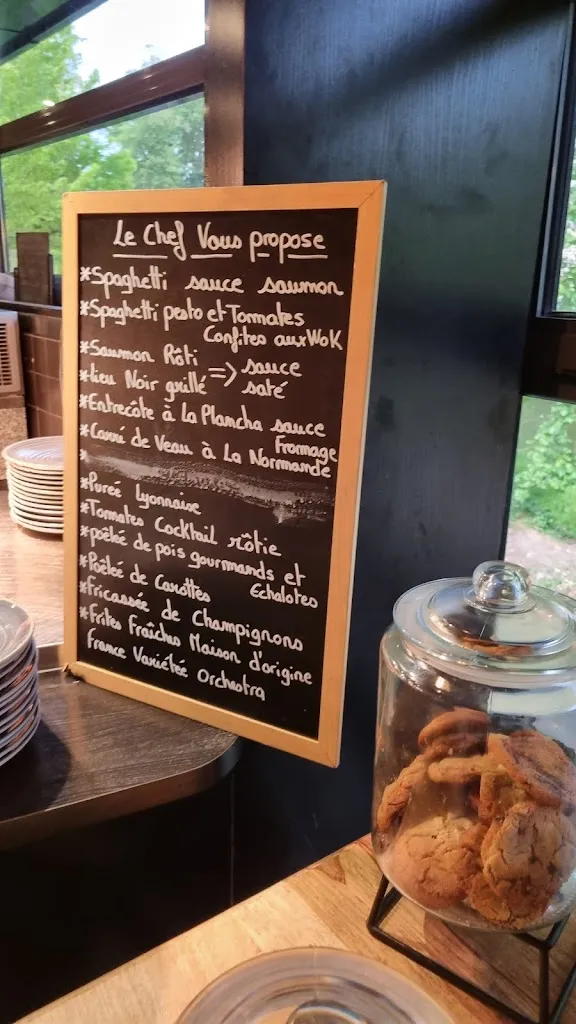 Le Chef Vous propose
*Spaghetti sauce saumon
*Spaghetti pesto et Tomates
Confites aux WoK
*Saumon Rôti
*lieu Noir grillé => sauce
saté
*Entrecôte à La Plancha sauce
Fromage
*Carré de Veau à La Normande
*
*Pureé Lyonnaise
*Tomates Cocktail rôtie
*poêleé de pois gourmands et
Echalotes
*Poêleé de Carottes
*Fricassée de Champignons
*Frites Fraîches Maison d'origine
France Variétée Orchestra